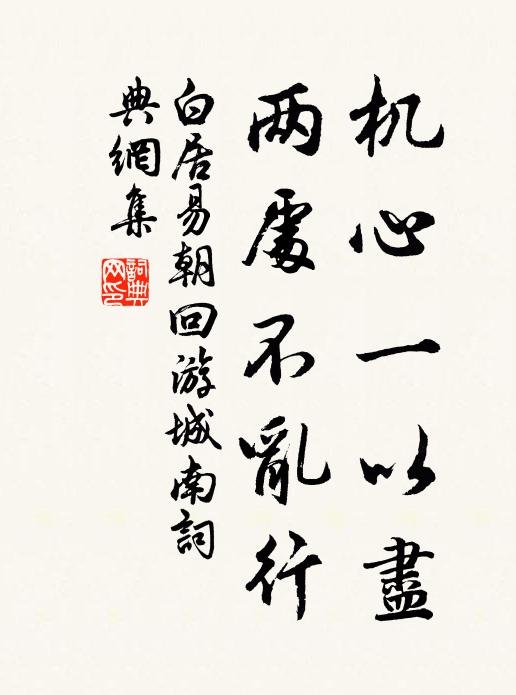 机心一以盡
两處不亂行
白居易朝回游城南詞
典網集
詞典
网印